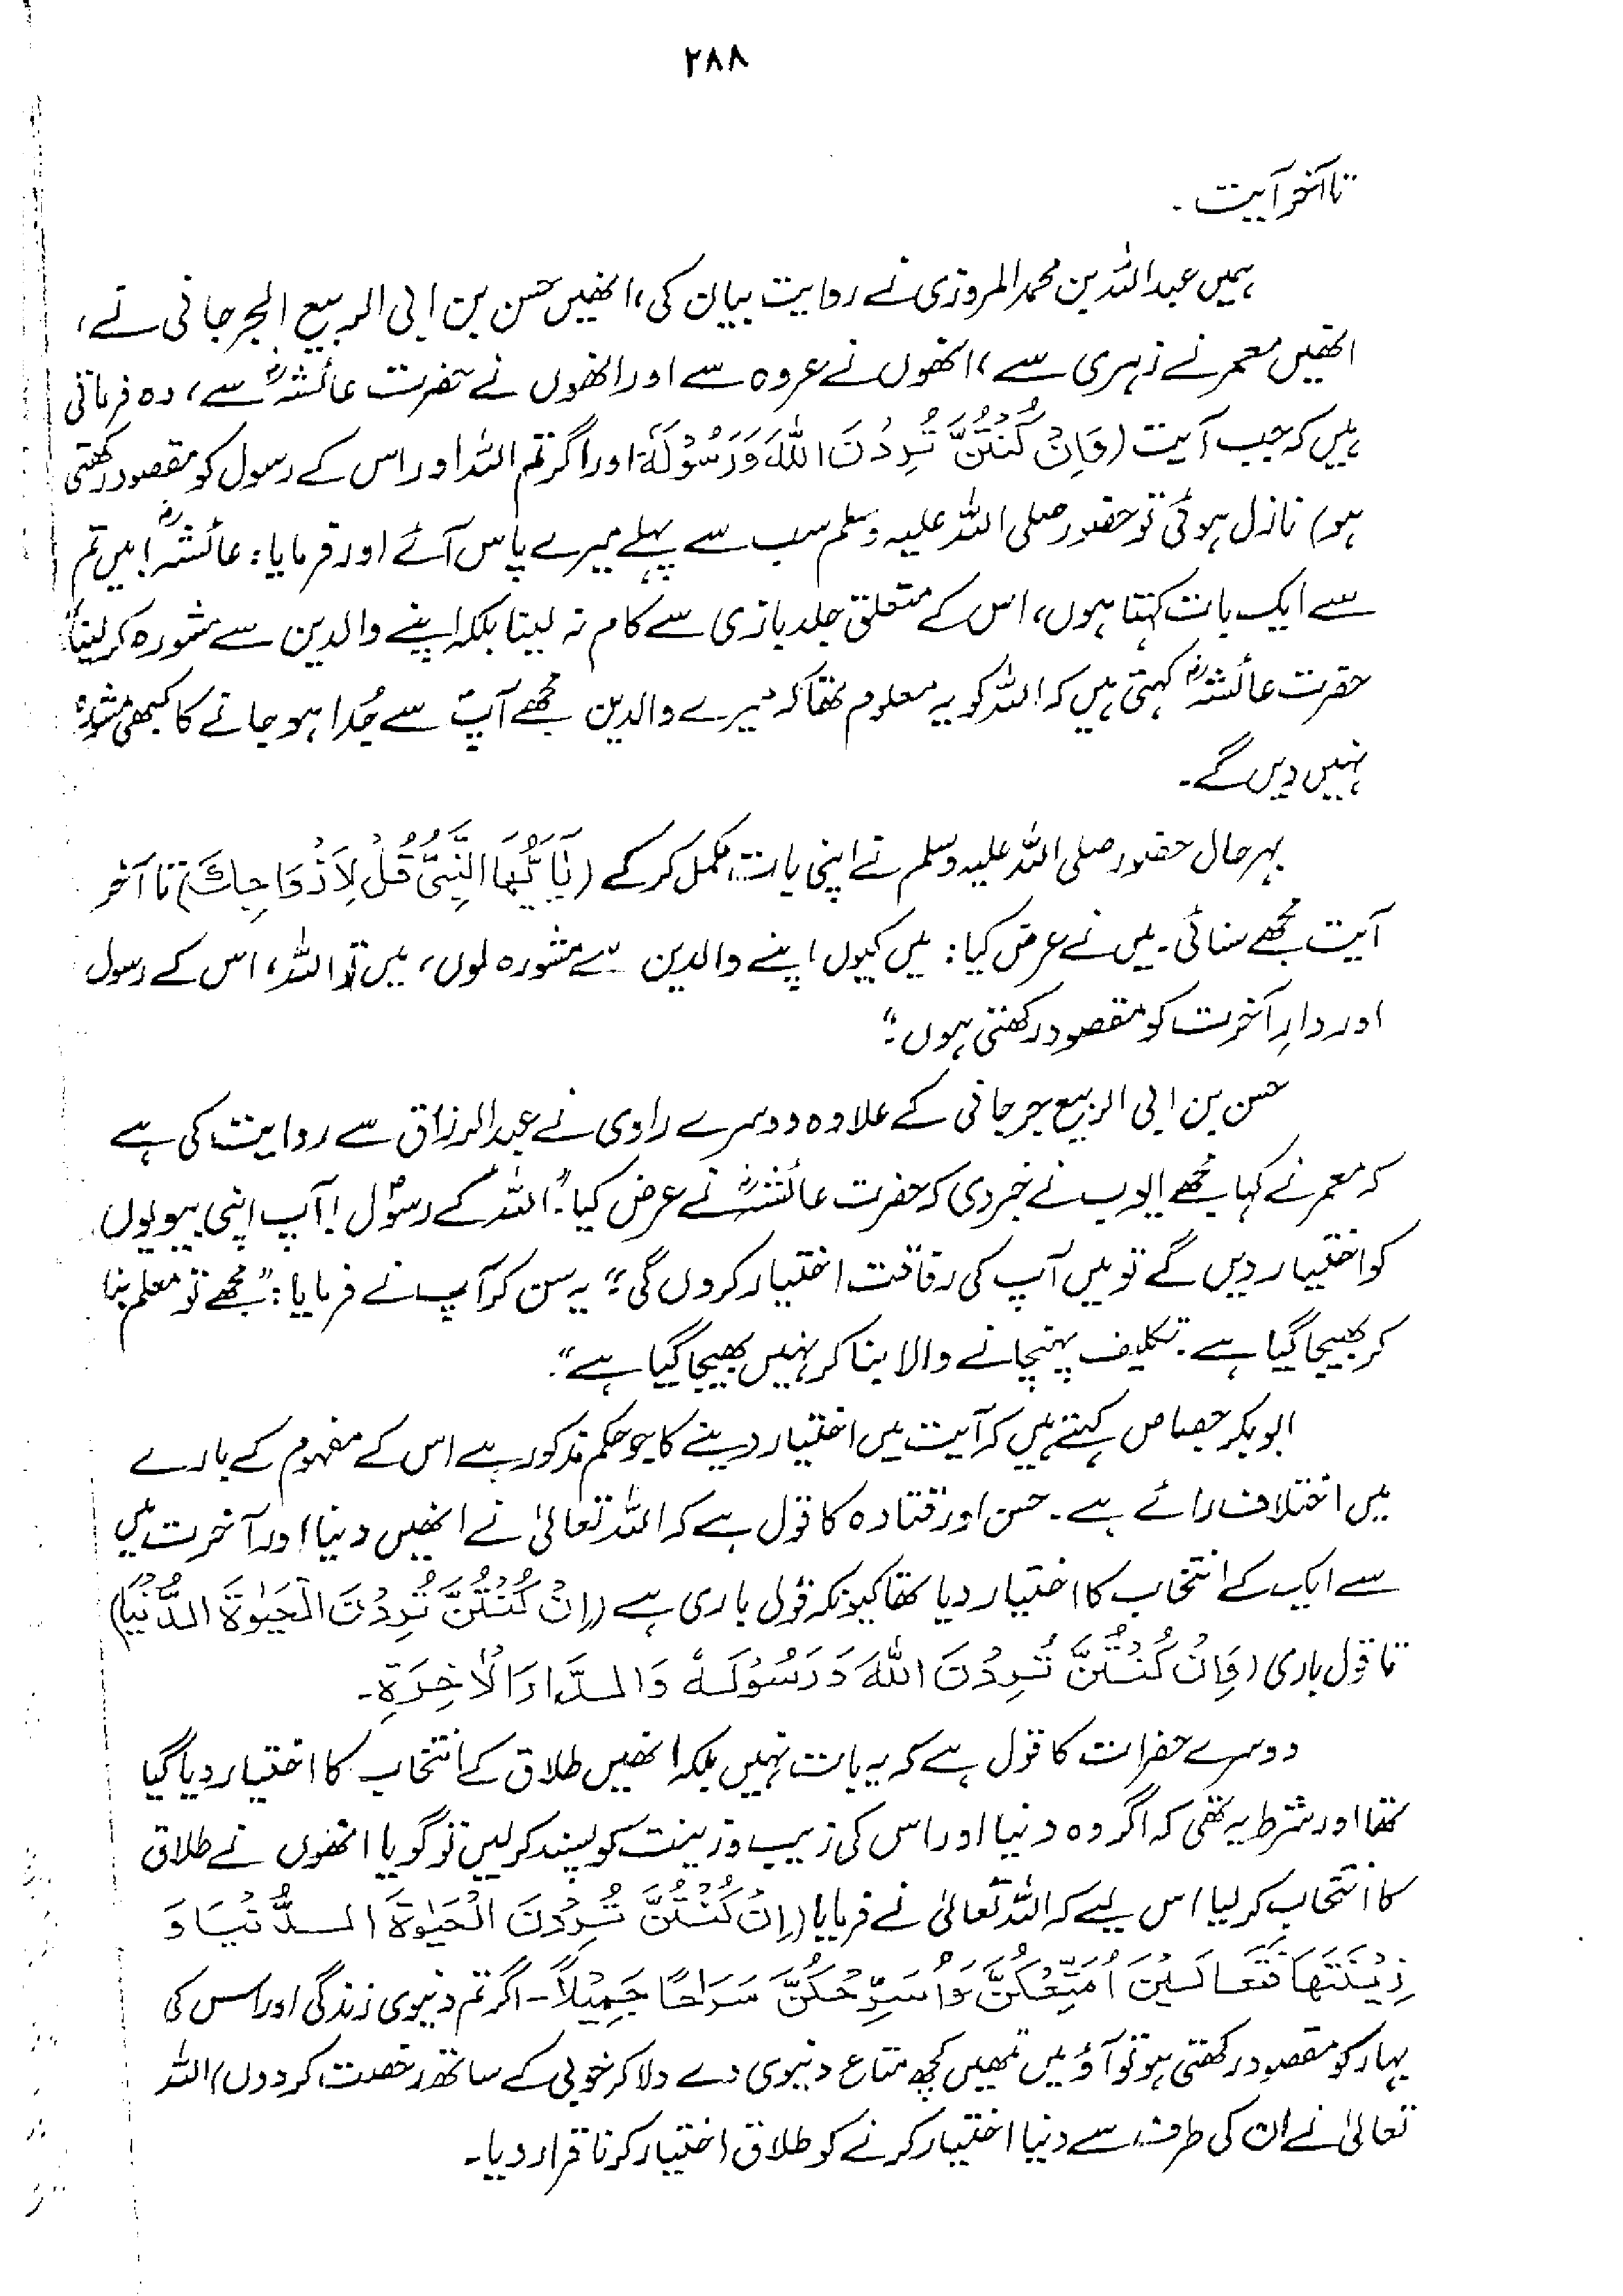 ۲۸۸
تا آخر آیت ۔
ہمیں عبداللہ بن محمد المروزی نے روایت بیان کی، انھیں حسن بن ابی الربیع الجرجانی نے،
انھیں معمر نے زہری سے، انھوں نے عروہ سے اور انھوں نے حضرت عائشہؓ سے، وہ فرماتی
ہیں کہ جب آیت (وَاِنْ كُنْتُنَّ تُرِدْنَ اللّٰهَ وَرَسُوْلَهٗ اور اگر تم اللہ اور اس کے رسول کو مقصود رکھتی
ہو) نازل ہوئی تو حضور صلی اللہ علیہ وسلم سب سے پہلے میرے پاس آئے اور فرمایا: عائشہؓ! میں تم
سے ایک بات کہتا ہوں، اس کے متعلق جلد بازی سے کام نہ لینا بلکہ اپنے والدین سے مشورہ کرلینا"
حضرت عائشہؓ کہتی ہیں کہ اللہ کو یہ معلوم تھا کہ میرے والدین مجھے آپؐ سے جُدا ہوجانے کا کبھی مشورہ
نہیں دیں گے۔
بہرحال حضور صلی اللہ علیہ وسلم نے اپنی بات مکمل کرکے (يٰٓاَيُّهَا النَّبِىُّ قُلْ لِاَزْوَاجِكَ) تا آخر
آیت مجھے سنائی۔ میں نے عرض کیا: میں کیوں اپنے والدین سے مشورہ لوں، میں تو اللہ، اس کے رسول
اور دارِ آخرت کو مقصود رکھتی ہوں۔"
حسن بن ابی الربیع جرجانی کے علاوہ دوسرے راوی نے عبدالرزاق سے روایت کی ہے
کہ معمر نے کہا مجھے ایوب نے خبر دی کہ حضرت عائشہؓ نے عرض کیا: "اللہ کے رسولؐ! آپ اپنی بیویوں
کو اختیار دیں گے تو میں آپ کی رفاقت اختیار کروں گی" یہ سن کر آپ نے فرمایا: "مجھے تو معلم بنا
کر بھیجا گیا ہے۔ تکلیف پہنچانے والا بنا کر نہیں بھیجا گیا ہے"۔
ابوبکر جصاص کہتے ہیں کہ آیت میں اختیار دینے کا جو حکم مذکور ہے اس کے مفہوم کے بارے
میں اختلاف رائے ہے۔ حسن اور قتادہ کا قول ہے کہ اللہ تعالیٰ نے انھیں دنیا اور آخرت میں
سے ایک کے انتخاب کا اختیار دیا تھا کیونکہ قول باری ہے (اِنْ كُنْتُنَّ تُرِدْنَ الْحَيٰوةَ الدُّنْيَا)
تا قول باری (وَاِنْ كُنْتُنَّ تُرِدْنَ اللّٰهَ وَرَسُوْلَهٗ وَالدَّارَ الْاٰخِرَةِ۔
دوسرے حضرات کا قول ہے کہ یہ بات نہیں بلکہ انھیں طلاق کے انتخاب کا اختیار دیا گیا
تھا اور شرط یہ تھی کہ اگر وہ دنیا اور اس کی زیب و زینت کو پسند کرلیں تو گویا انھوں نے طلاق
کا انتخاب کرلیا اس لیے کہ اللہ تعالیٰ نے فرمایا (اِنْ كُنْتُنَّ تُرِدْنَ الْحَيٰوةَ الدُّنْيَا وَ
زِيْنَتَهَا فَتَعَالَيْنَ اُمَتِّعْكُنَّ وَاُسَرِّحْكُنَّ سَرَاحًا جَمِيْلًا۔ اگر تم دنیوی زندگی اور اس کی
بہار کو مقصود رکھتی ہو تو آؤ میں تمھیں کچھ متاع دنیوی دے دلا کر خوبی کے ساتھ رخصت کردوں) اللہ
تعالیٰ نے ان کی طرف سے دنیا اختیار کرنے کو طلاق اختیار کرنا قرار دیا۔